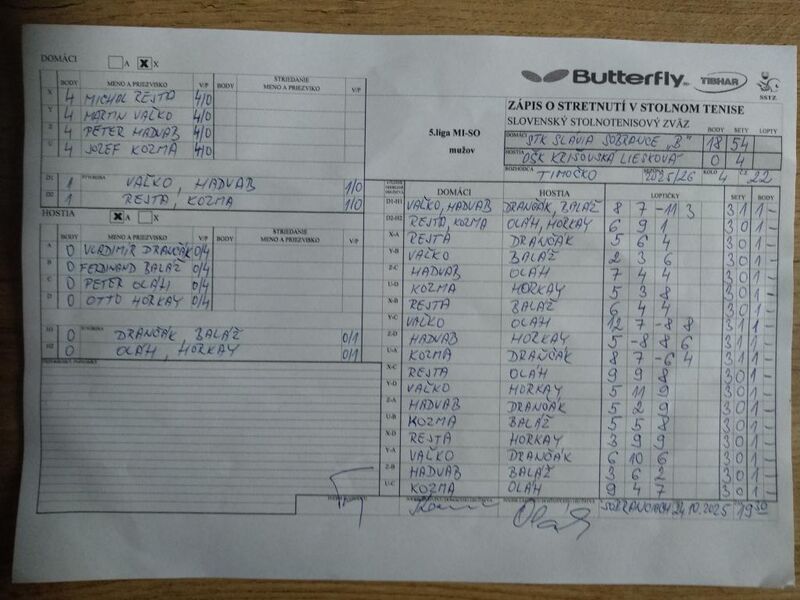 DOMÁCI A X X
BODY MENO A PRIEZVISKO V/P BODY STRIEDANIE MENO A PRIEZVISKO V/P
X 4 MICHAL REJTA 4/0
Y 4 MARTIN VAĽKO 4/0
Z 4 PETER HADVAB 4/0
U 4 JOZEF KOZMA 4/0
D1 1 ŠTVORHRA VAĽKO, HADVAB 1/0
D2 1 REJTA, KOZMA 1/0
HOSTIA X A X
BODY MENO A PRIEZVISKO V/P BODY STRIEDANIE MENO A PRIEZVISKO V/P
A 0 VLADIMÍR DRANČÁK 0/4
B 0 FERDINAND BALÁŽ 0/4
C 0 PETER OLÁH 0/4
D 0 OTTO HORKAY 0/4
H1 0 ŠTVORHRA DRANČÁK BALÁŽ 0/1
H2 0 OLÁH, HORKAY 0/1
Butterfly TIBHAR SSTZ
5.liga MI-SO
mužov
ZÁPIS O STRETNUTÍ V STOLNOM TENISE
SLOVENSKÝ STOLNOTENISOVÝ ZVÄZ
BODY SETY LOPTY
DOMÁCI STK SLÁVIA SOBRANCE „B" 18 54
HOSTIA OŠK KRIŠOVSKÁ LIESKOVÁ 0 4
ROZHODCA TIMOČKO 2025/26 KOLO 4 Č.Z. 22
DOMÁCI HOSTIA LOPTIČKY SETY BODY
D1-H1 VAĽKO, HADVAB DRANČÁK, BALÁŽ 8 7 -11 3 3 1 1 -
D2-H2 REJTA, KOZMA OLÁH, HORKAY 6 9 1 3 0 1 -
X-A REJTA DRANČÁK 5 6 4 3 0 1 -
Y-B VAĽKO BALÁŽ 2 3 6 3 0 1 -
Z-C HADVAB OLÁH 7 4 4 3 0 1 -
U-D KOZMA HORKAY 5 3 8 3 0 1 -
X-B REJTA BALÁŽ 6 4 4 3 0 1 -
Y-C VAĽKO OLÁH 12 7 -8 8 3 1 1 -
Z-D HADVAB HORKAY 5 -8 8 6 3 1 1 -
U-A KOZMA DRANČÁK 8 7 -6 4 3 1 1 -
X-C REJTA OLÁH 9 9 8 3 0 1 -
Y-D VAĽKO HORKAY 5 11 9 3 0 1 -
Z-A HADVAB DRANČÁK 5 2 9 3 0 1 -
U-B KOZMA BALÁŽ 5 5 8 3 0 1 -
X-D REJTA HORKAY 3 9 9 3 0 1 -
Y-A VAĽKO DRANČÁK 6 10 6 3 0 1 -
Z-B HADVAB BALÁŽ 3 6 2 3 0 1 -
U-C KOZMA OLÁH 9 4 7 3 0 1 -
SOBRANCIACH 24.10.2025 19 30